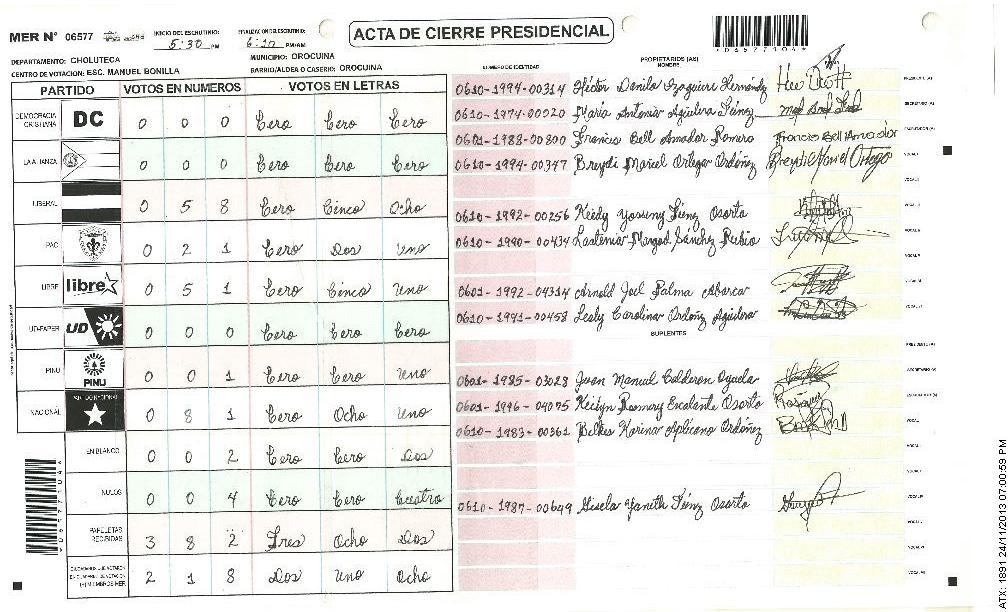 MER N° 06577
INICIO DEL ESCRUTINIO:
5:30 PM
FINALIZACION DEL ESCRUTINIO:
6:10 PM/AM
ACTA DE CIERRE PRESIDENCIAL
*06577104*
DEPARTAMENTO: CHOLUTECA
MUNICIPIO: OROCUINA
CENTRO DE VOTACION: ESC. MANUEL BONILLA
BARRIO/ALDEA O CASERIO: OROCUINA
PARTIDO VOTOS EN NUMEROS VOTOS EN LETRAS
DEMOCRACIA CRISTIANA DC 0 0 0 Cero Cero Cero
LA ALIANZA 0 0 0 Cero Cero Cero
LIBERAL 0 5 8 Cero Cinco Ocho
PAC 0 2 1 Cero Dos Uno
LIBRE libre 0 5 1 Cero Cinco Uno
UD-FAPER UD 0 0 0 Cero Cero Cero
PINU PINU 0 0 1 Cero Cero Uno
NACIONAL PARTIDO NACIONAL 0 8 1 Cero Ocho Uno
EN BLANCO 0 0 2 Cero Cero Dos
NULOS 0 0 4 Cero Cero Cuatro
PAPELETAS RECIBIDAS 3 8 2 Tres Ocho Dos
CIUDADANOS QUE VOTARON 2 1 8 Dos Uno Ocho
NUMERO DE IDENTIDAD
PROPIETARIOS (AS)
NOMBRE
0610-1994-00314 Héctor Danilo Izaguirre Hernández
0610-1974-00020 María Antonia Aguilera Túnez
0601-1988-00800 Francis Bell Amador Romero Francis Bell Amador
0610-1994-00347 Breydi Mariel Ortega Ordóñez Breydi Mariel Ortega
0610-1992-00256 Keidy Yosuny Túnez Osorto
0610-1990-00434 Lastenia Margod Sánchez Rubio
0601-1992-04314 Arnold Joel Palma Abarca
0610-1991-00458 Lesly Carolina Ordóñez Aguilera
SUPLENTES
0601-1985-03028 Juan Manuel Calderon Oyuela
0601-1996-04075 Keidyn Rosmery Escalante Osorto
0610-1983-00361 Belkis Karina Aplicano Ordóñez
0610-1987-00649 Gisela Yanith Túnez Osorto
*06577104*
ATX: 1891 24/11/2013 07:00:59 PM